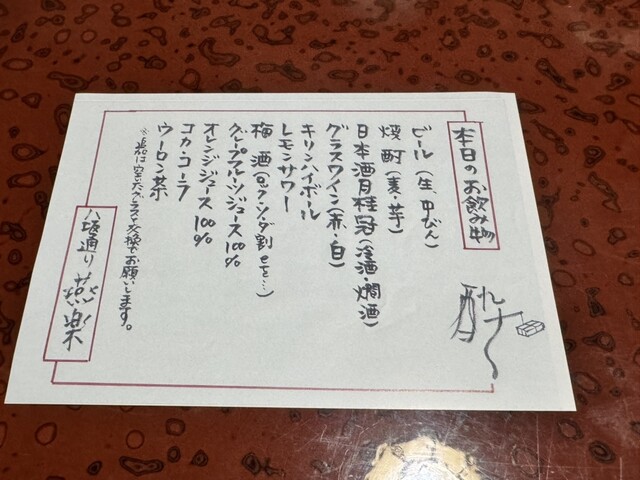 本日のお飲み物
ビール(生、中びん)
焼酎(麦・芋)
日本酒月桂冠(冷酒・燗酒)
グラスワイン(赤・白)
キリンハイボール
レモンサワー
梅酒(ロック・ソーダ割etc…)
グレープフルーツジュース100%
オレンジジュース100%
コカ・コーラ
ウーロン茶
※追加は空いたグラスと交換でお願いします。
八坂通り 燕楽